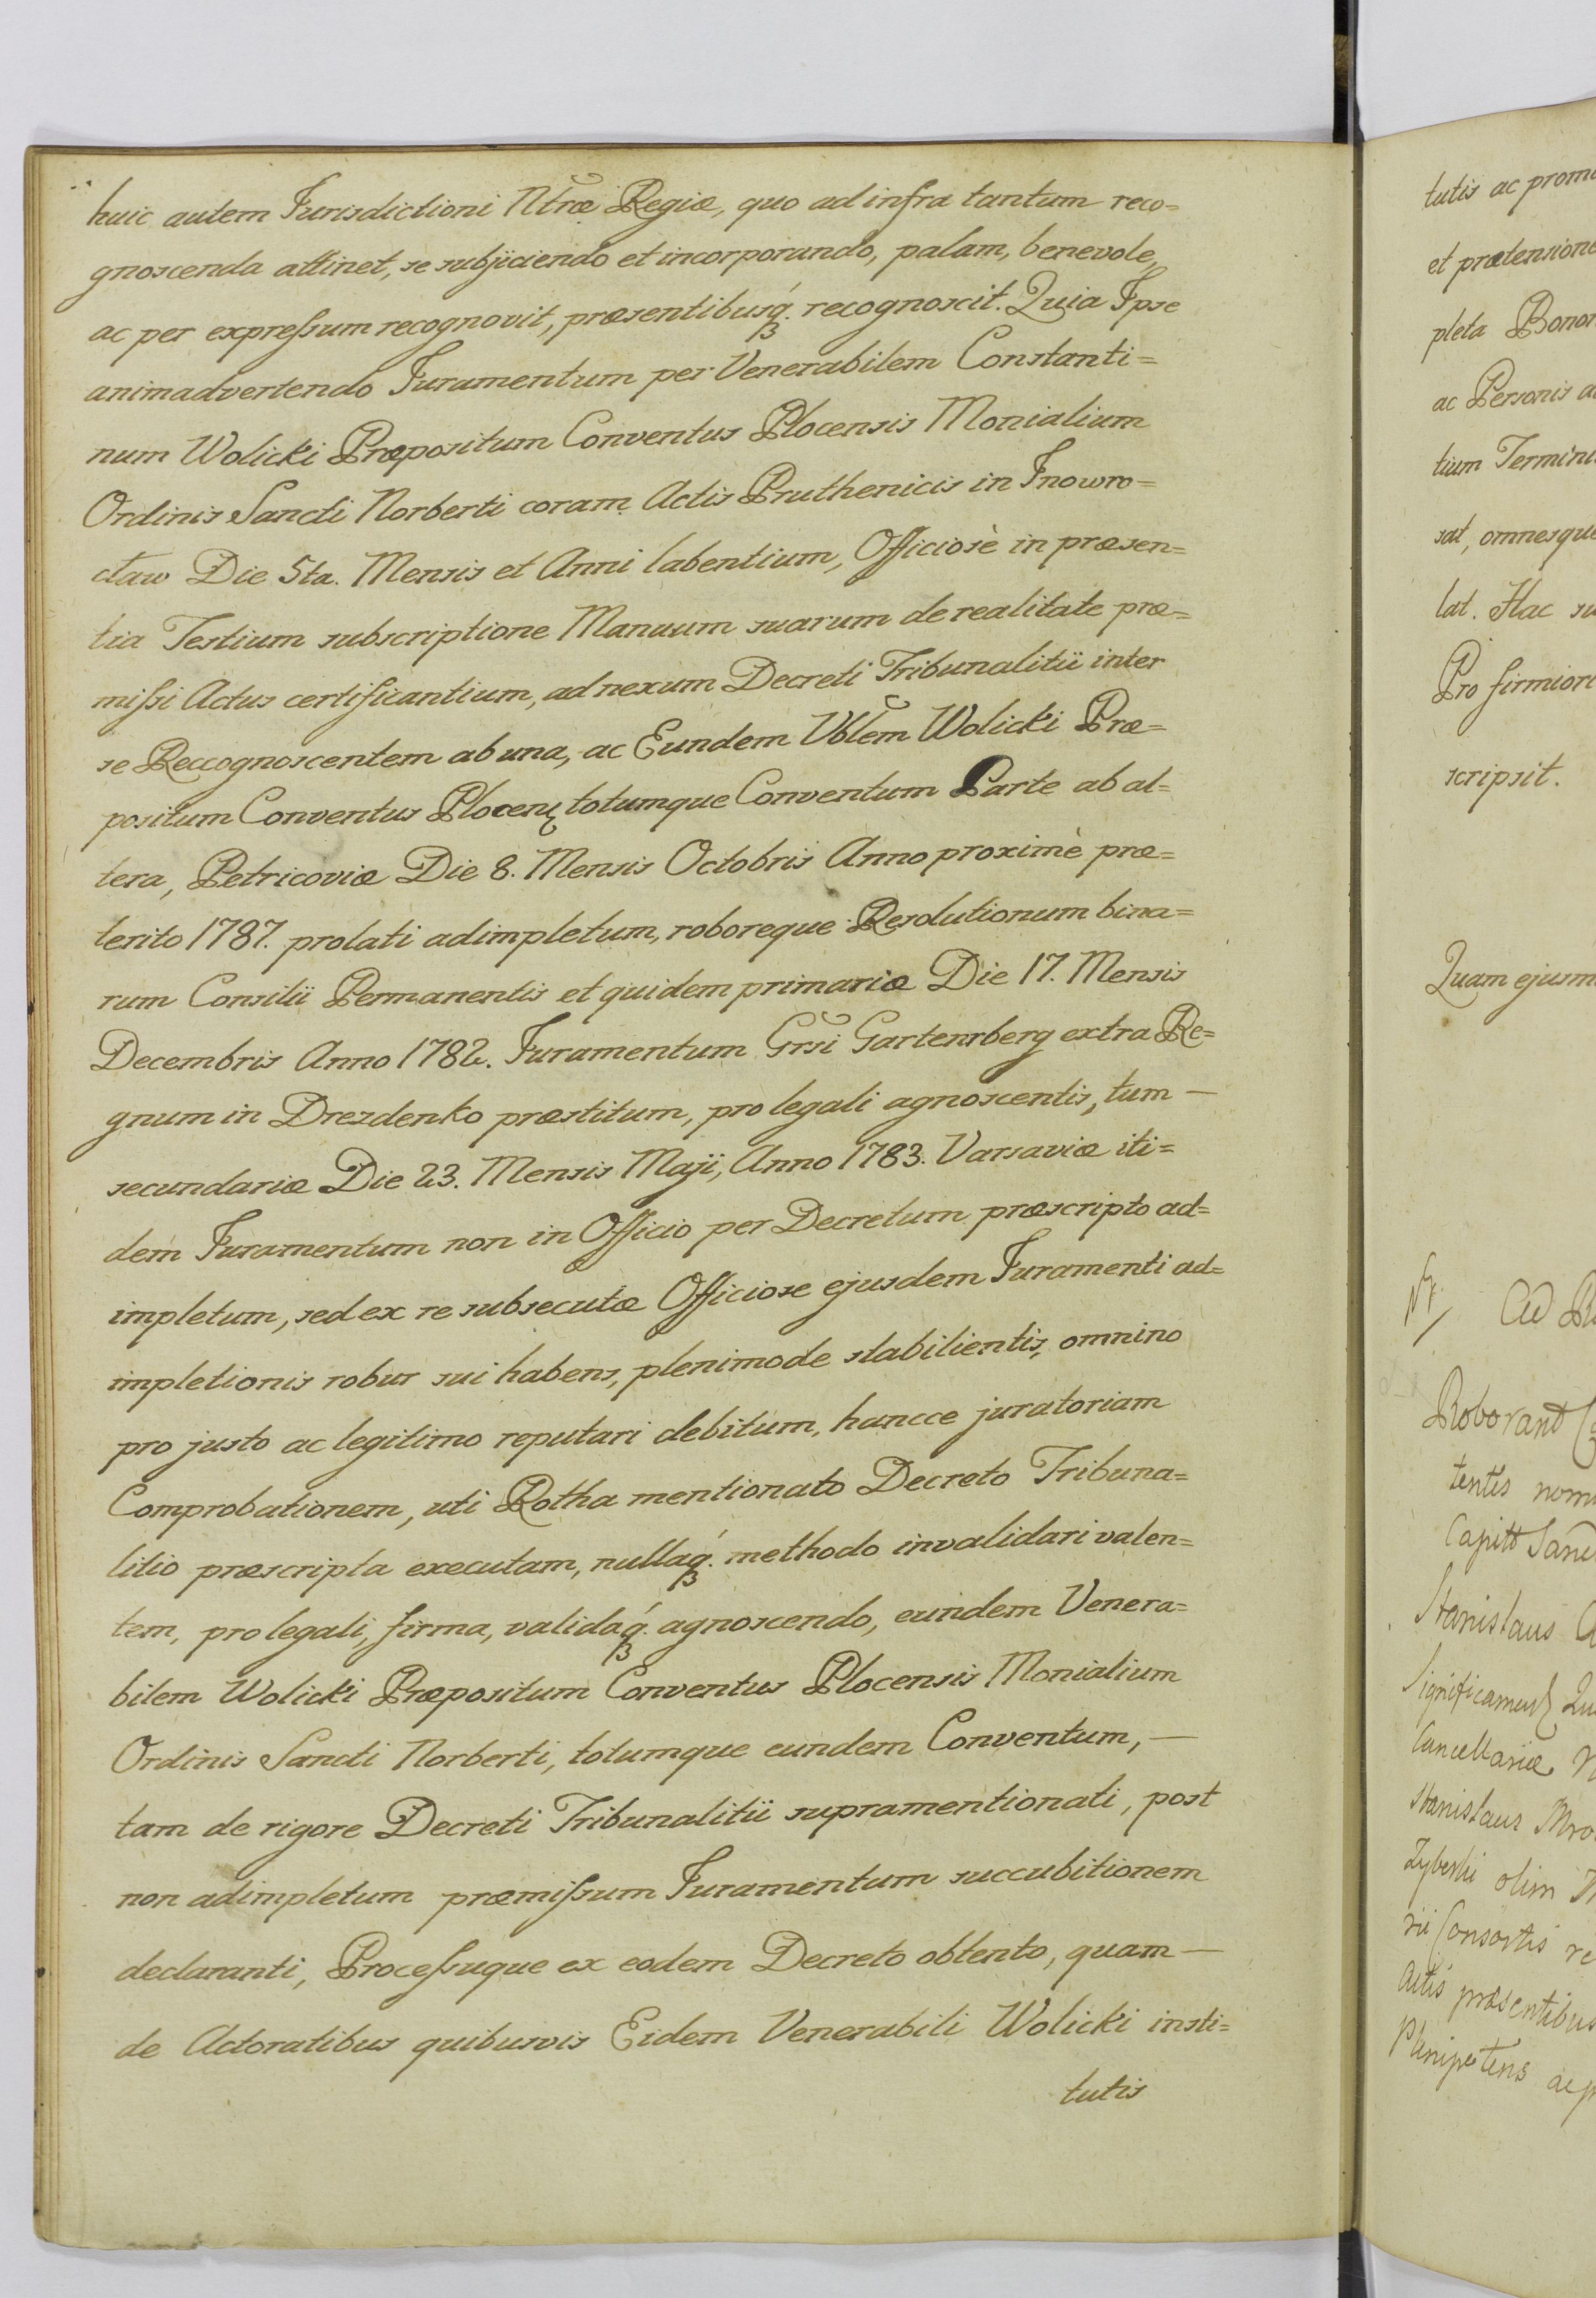 huic autem Jurisdictioni Ntræ Regiæ, quo ad infra tantum reco=
gnoscenda attinet, se subjiciendo et incorporando, palam, benevole,
ac per expreſsum recognovit, præsentibusq́3. recognoscit. Quia Ipse
animadvertendo Juramentum per Venerabilem Constanti=
num Wolicki Præpositum Conventus Plocensis Monialium
Ordinis Sancti Norberti coram Actis Pruthenicis in Inowro=
cław Die 5ta. Mensis et Anni labentium, Officiosè in præsen=
tia Testium subscriptione Manuum suarum de realitate præ=
miſsi Actus certificantium, ad nexum Decreti Tribunalitii inter
se Reccognoscentem ab una, ac Eundem Vblem Wolicki Præ=
positum Conventus Plocens totumque Conventum Parte ab al=
tera, Petricoviæ Die 8. Mensis Octobris Anno proximè præ=
terito 1787. prolati adimpletum, roboreque Resolutionum bina=
rum Consilii Permanentis et quidem primariæ Die 17. Mensis
Decembris Anno 1782. Juramentum Grsi Gartenrberg extra Re=
gnum in Drezdenko præstitum, pro legali agnoscentis, tum —
secundariæ Die 23. Mensis Maji, Anno 1783. Varsaviæ iti=
dem Juramentum non in Officio per Decretum præscripto ad=
impletum, sed ex re subsecutæ Officiose ejusdem Juramenti ad=
impletionis robur sui habens, plenimode stabilientis, omnino
pro justo ac legitimo reputari debitum, hancce juratoriam
Comprobationem, uti Rotha mentionato Decreto Tribuna=
litio præscripta executam, nullaq́3. methodo invalidari valen=
tem, pro legali, firma, validaq́3. agnoscendo, eundem Venera=
bilem Wolicki Præpositum Conventus Plocensis Monialium
Ordinis Sancti Norberti, totumque eundem Conventum, —
tam de rigore Decreti Tribunalitii supramentionati, post
non adimpletum præmiſsum Juramentum succubitionem
declaranti, Proceſsuque ex eodem Decreto obtento, quam —
de Actoratibus quibusvis Eidem Venerabili Wolicki insti=
tutis
tutis ac prom
et prætensione
pleta Bonor
ac Personis a
tium Termini
sat, omnesque
lat. Hac su
Pro firmiori
scripsit.
Quam ejusm
Ad R
Roborant
tentis nom
Capitt Sanc
Stanislaus
Significamus Qu
Cancellariæ N
Stanislaus Mro
Zyberki olim
rii Consortis re
Actis præsentibus
Plenipotens ac p